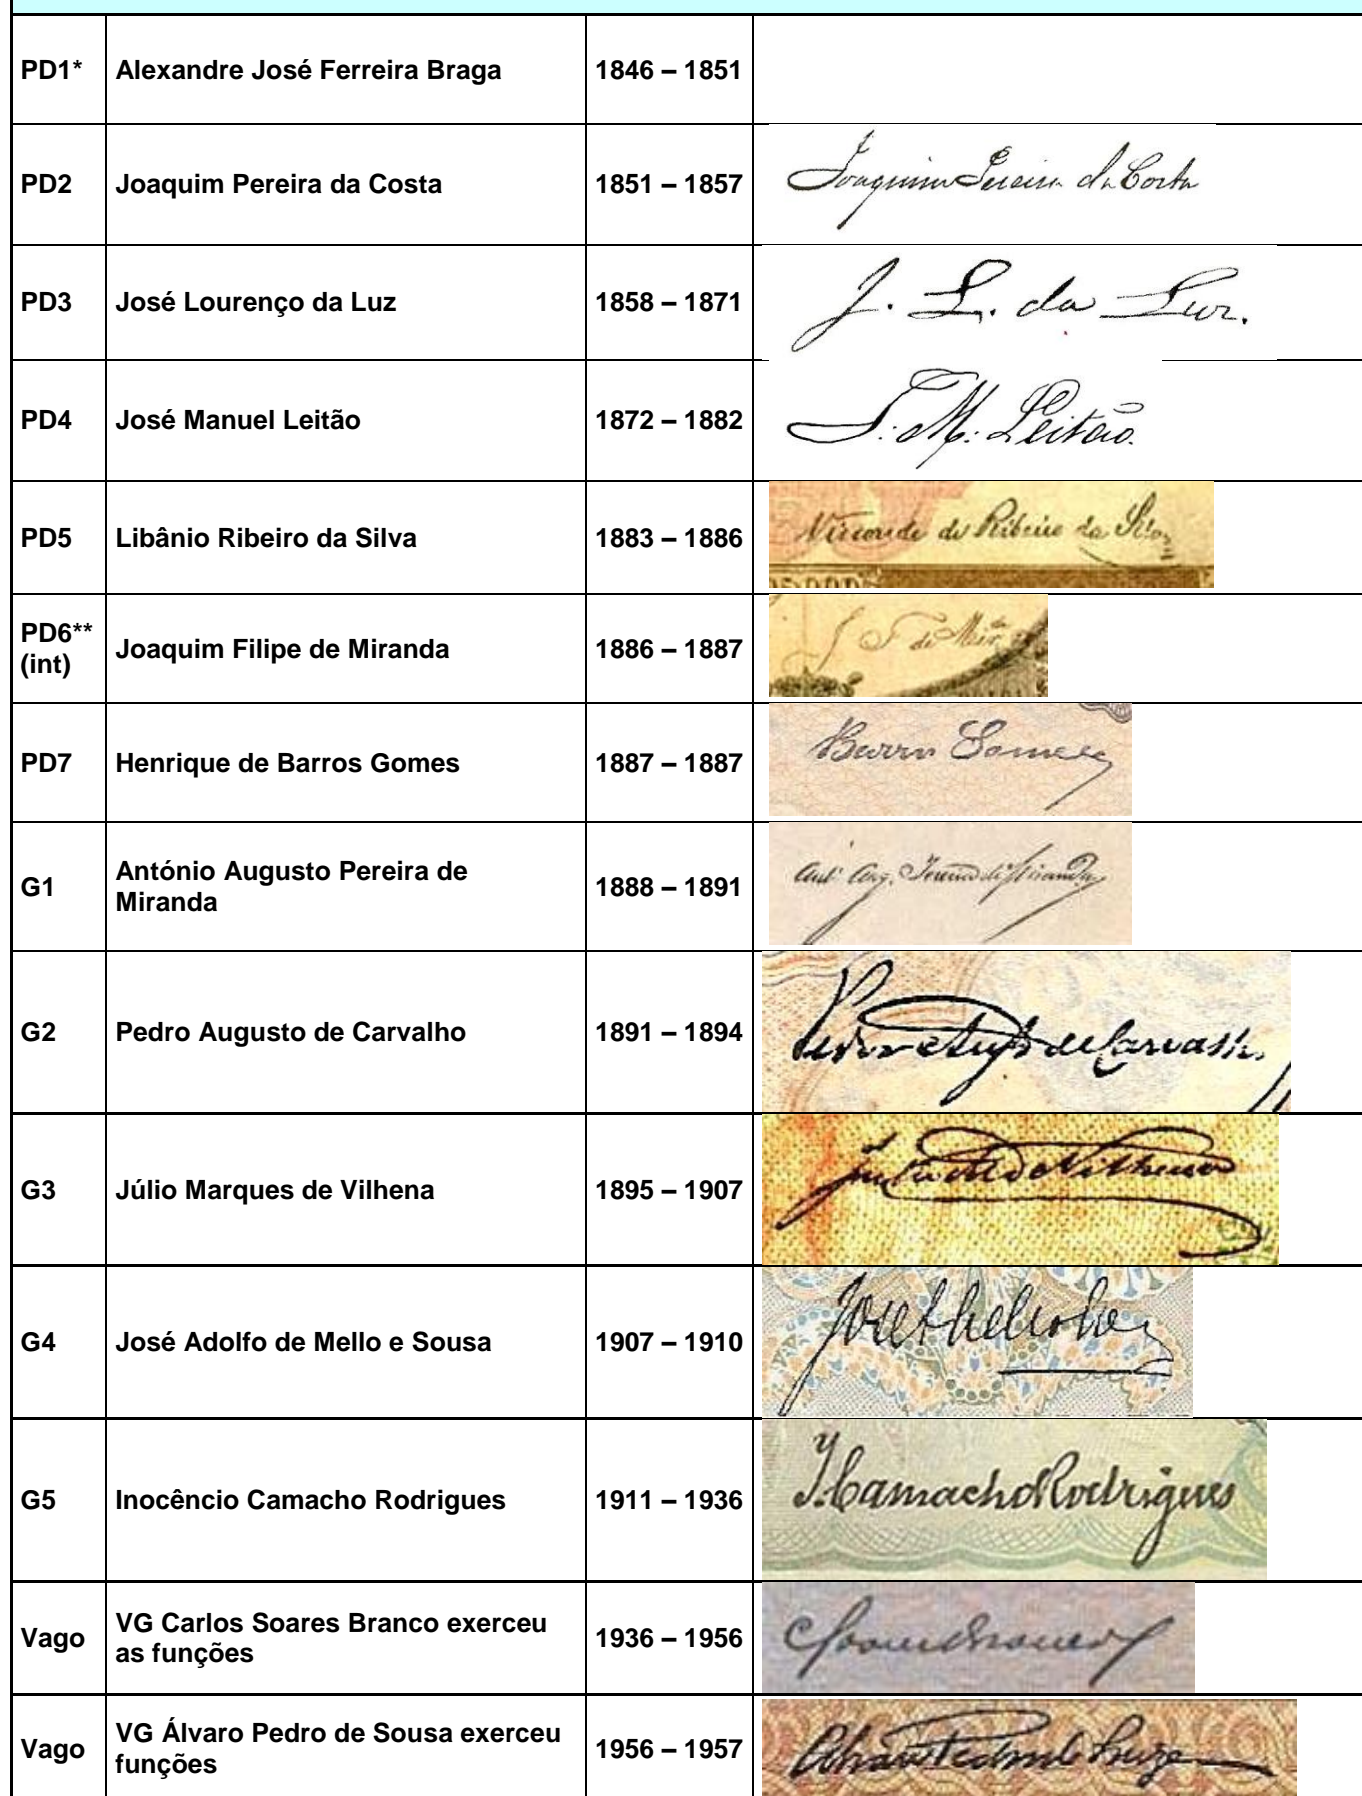 PD1* Alexandre José Ferreira Braga 1846 – 1851
PD2 Joaquim Pereira da Costa 1851 – 1857 Joaquim Pereira da Costa
PD3 José Lourenço da Luz 1858 – 1871 J. L. da Luz.
PD4 José Manuel Leitão 1872 – 1882 J. M. Leitão.
PD5 Libânio Ribeiro da Silva 1883 – 1886 Visconde de Ribeiro da Silva
PD6**
(int) Joaquim Filipe de Miranda 1886 – 1887 J F de Mir.da
PD7 Henrique de Barros Gomes 1887 – 1887 Barros Gomes
G1 António Augusto Pereira de
Miranda 1888 – 1891 Ant.º Aug. Pereira de Miranda
G2 Pedro Augusto de Carvalho 1891 – 1894 Pedro Aug.to de Carvalho
G3 Júlio Marques de Vilhena 1895 – 1907 Julio M. de Vilhena
G4 José Adolfo de Mello e Sousa 1907 – 1910
G5 Inocêncio Camacho Rodrigues 1911 – 1936 I. Camacho Rodrigues
Vago VG Carlos Soares Branco exerceu
as funções 1936 – 1956 C Soares Branco
Vago VG Álvaro Pedro de Sousa exerceu
funções 1956 – 1957 Alvaro Pedro de Souza